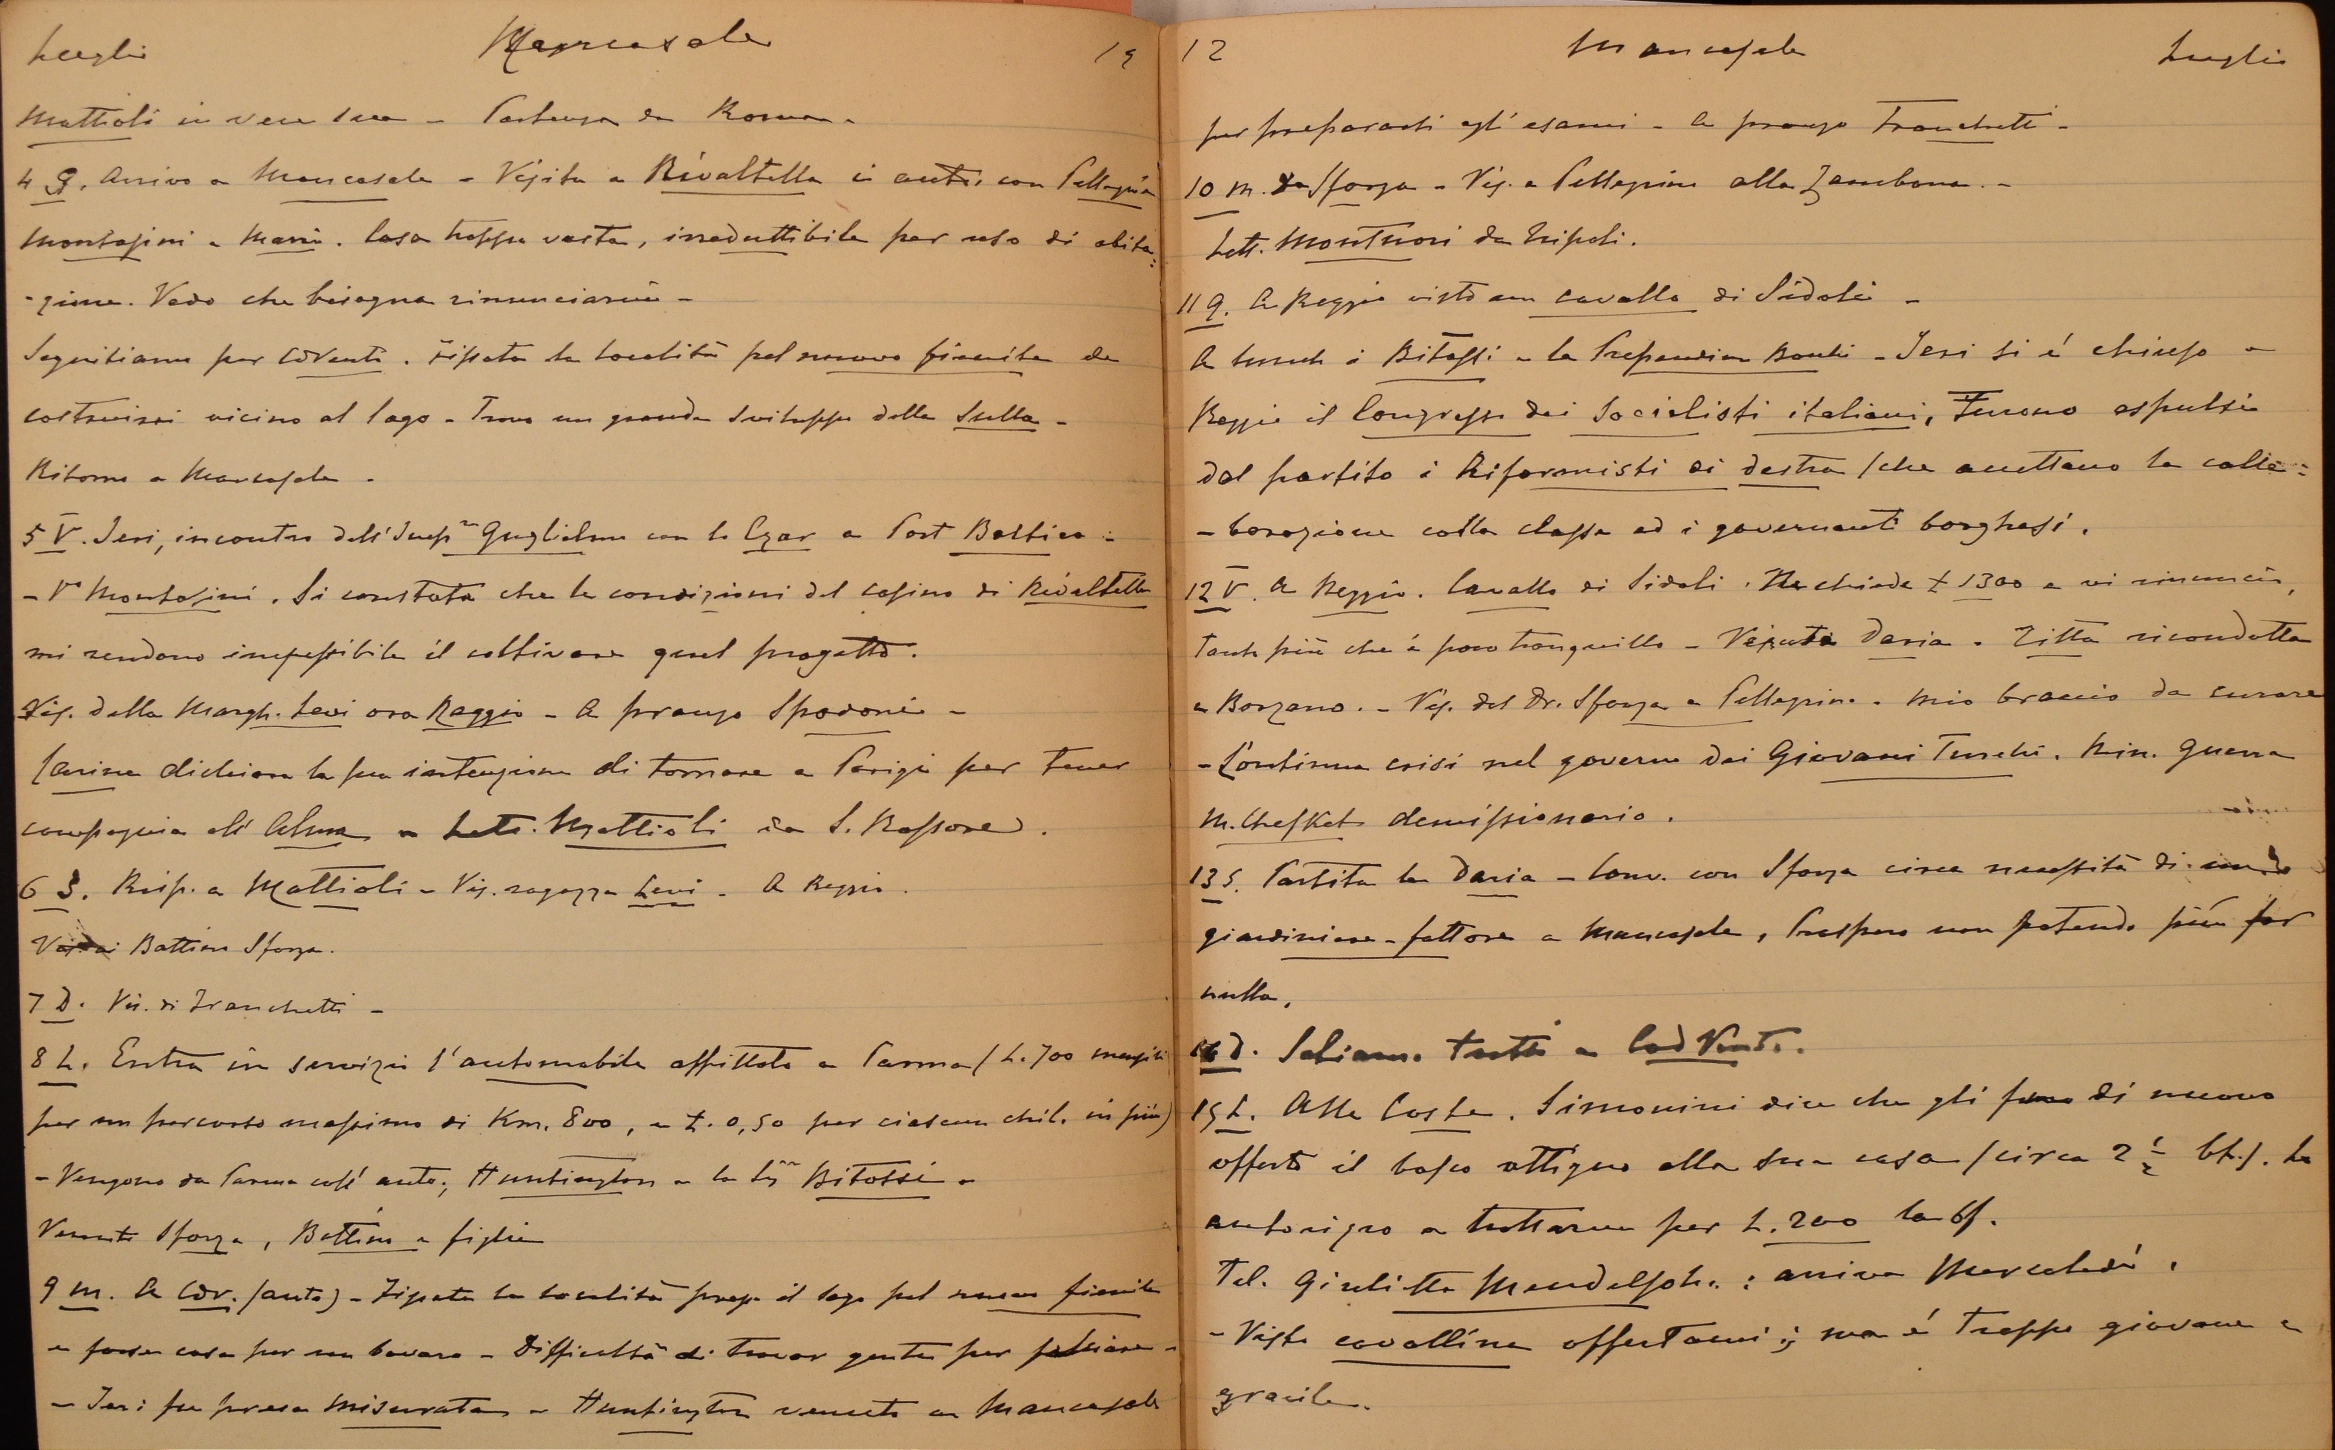 Luglio Mancasale 19
Mattioli in vece sua - Partenza da Roma -
4 G. Arrivo a Mancasale - Visita a Rivaltella in auto, con Pellegrin
Montasini e Mario. Casa troppo vasta, inadattibile per uso di abita=
-zione. Vedo che bisogna rinunciarvi -
Seguitiamo per CdVento. Fissata la località pel nuovo fienile da
costruirsi vicino al lago - Trovo un grande sviluppo della Sulla -
Ritorno a Mancasale -
5 V. Ieri, incontro dell'Imp.re Guglielmo con lo Czar a Port Baltico -
- Vo Montasini. Si constata che le condizioni del casino di Rivaltella
mi rendono impossibile il coltivare quel progetto.
Vis. della Margh. Levi ora Raggio - A pranzo Spadoni -
Carina dichiara la sua intenzione di tornare a Parigi per tener
compagnia all'Alma - Lett. Mattioli da S. Rossore.
6 S. Risp. a Mattioli - Vis. ragazza Levi - A Reggio.
Battino Sforza.
7 D. Vis. di Franchetti -
8 L. Entra in servizio l'automobile affittato a Parma (L. 700 mensili
per un percorso massimo di Km. 800, e L. 0,50 per ciascun chil. in più)
- Vengono da Parma coll'auto, Huntington e la Sig.na Bitossi -
Venuti Sforza, Battino e figlio
9 M. A CdV. (auto) - Fissata la località presso il lago pel nuovo fienile
e forse casa per un bovaro - Difficoltà di trovar gente per falciare -
- Ieri fu presa Misurata - Huntington venuto a Mancasale
12 Mancasale Luglio
per prepararsi agl'esami - A pranzo Franchetti -
10 M. Da Sforza - Vis. a Pellegrino alla Zambona. -
Lett. Montuori da Tripoli.
11 G. A Reggio visto un cavallo di Sidoli -
A lunch i Bitossi e la Prependina Bonli - Ieri si è chiuso a
Reggio il Congresso dei Socialisti italiani, Furono espulsi
dal partito i Riformisti di destra (che accettano la colla=
-borazione colla classe ed i governanti borghesi.
12 V. A Reggio. Cavallo di Sidoli. Ne chiede L 1300 e vi rinuncio,
tanto più che è poco tranquillo - Venuta Daria - Zitta ricondotta
a Borzano. - Vis. del Dr. Sforza a Pellegrino. Mio braccio da curare
- Continua crisi nel governo dei Giovani Turchi. Min. Guerra
M. Chefket demissionario.
13 S. Partita la Daria - Conv. con Sforza circa necessità di un
giardiniere-fattore a Mancasale, Prospero non potendo più far
nulla.
14 D. Saliamo tutti a Cad Vento.
15 L. Alle Coste. Simonini dice che gli funo di nuovo
offerto il bosco attiguo alla sua casa (circa 2 1/2 bf.). Lo
autorizzo a trattarne per L. 200 la bf.
Tel. Giulietta Mendelsoh. : arriva Mercoledì.
- Vista cavallina offertami ; ma è troppo giovane e
gracile.